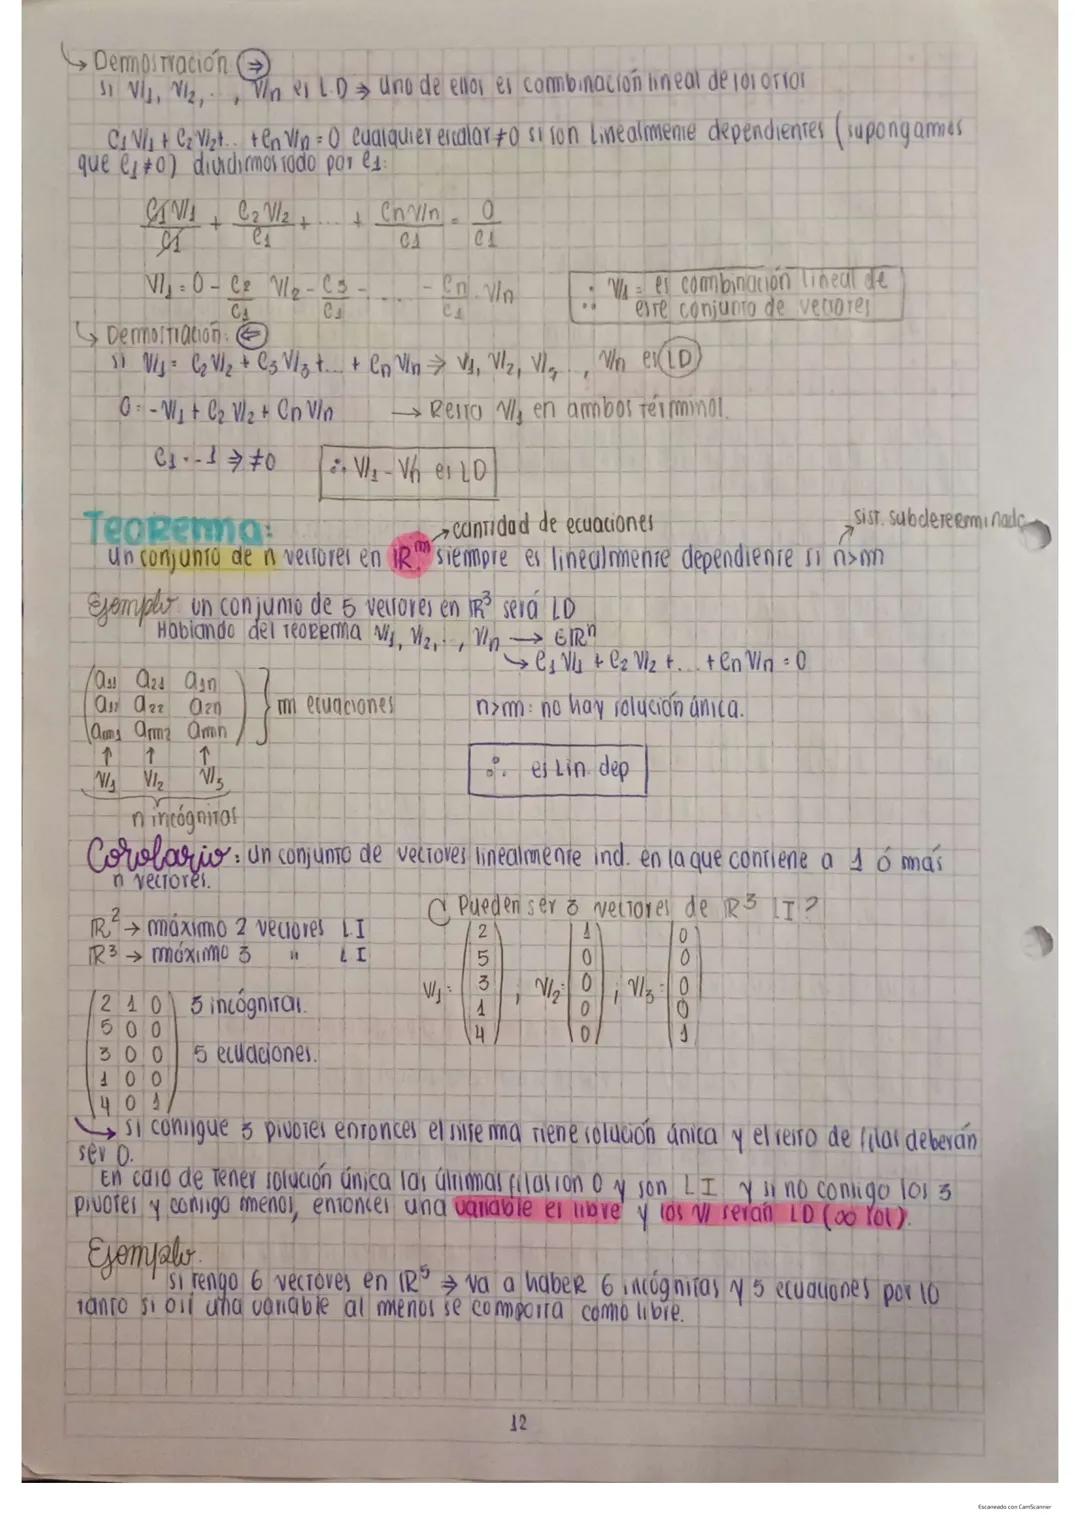 ↳ Demostración (⇒)
si V1, V2, ..., Vn es L.D ⇒ uno de ellos es combinación lineal de los otros
C1 V1 + C2 V2 + .. + Cn Vn = 0 cualquier escalar ≠ 0 si son linealmente dependientes (supongamos
que C1 ≠ 0) dividirmos todo por C1:
C1 V1/C1 + C2 V2/C1 + ... + Cn Vn/C1 = 0/C1
V1 = 0 - C2/C1 V2 - C3/C1 - .... - Cn/C1 . Vn
∴ V1 = es combinación lineal de
este conjunto de vectores
↳ Demostración: (⇐)
si V1 = C2 V2 + C3 V3 + ... + Cn Vn ⇒ V1, V2, V3 .., Vn es LD
0 = -V1 + C2 V2 + Cn Vn → Resto V1 en ambos términos.
C1 = -1 ⇒ ≠ 0
∴ V1 - Vn es LD
Teorema: → cantidad de ecuaciones sist. subdetereerminado
un conjunto de n vectores en ℝm siempre es linealmente dependiente si n>m
Ejemplo: un conjunto de 5 vectores en ℝ3 será LD
Hablando del teorema V1, V2, .., Vn → ∈ ℝn
↳ C1 V1 + C2 V2 + ... + Cn Vn = 0
a11 a21 a1n
a12 a22 a2n } m ecuaciones
am1 am2 amn
n>m: no hay solución única.
↑ ↑ ↑
V1 V2 V3
∴ es Lin. dep
n incógnitas
Corolario: un conjunto de vectores linealmente ind. en la que contiene a 1 ó más
n vectores.
ℝ2 → máximo 2 vectores L.I
ℝ3 → máximo 3 " L I
¿ Pueden ser 3 vectores de ℝ3 LI ?
V1 = (2 5 3 1 4), V2 = (1 0 0 0 0); V3 = (0 0 0 0 1)
2 1 0 3 incógnitas.
5 0 0
3 0 0 5 ecuaciones.
1 0 0
4 0 1
↳ si consigue 3 pivotes entonces el sistema tiene solución única y el resto de filas deberán
ser 0.
En caso de tener solución única las últimas filas son 0 y son LI y si no consigo los 3
pivotes y consigo menos, entonces una variable es libre y los V serán LD (∞ sol).
Ejemplo.
si tengo 6 vectores en ℝ5 ⇒ va a haber 6 incógnitas y 5 ecuaciones por lo
tanto si o si una variable al menos se comporta como libre.
12
Escaneado con CamScanner